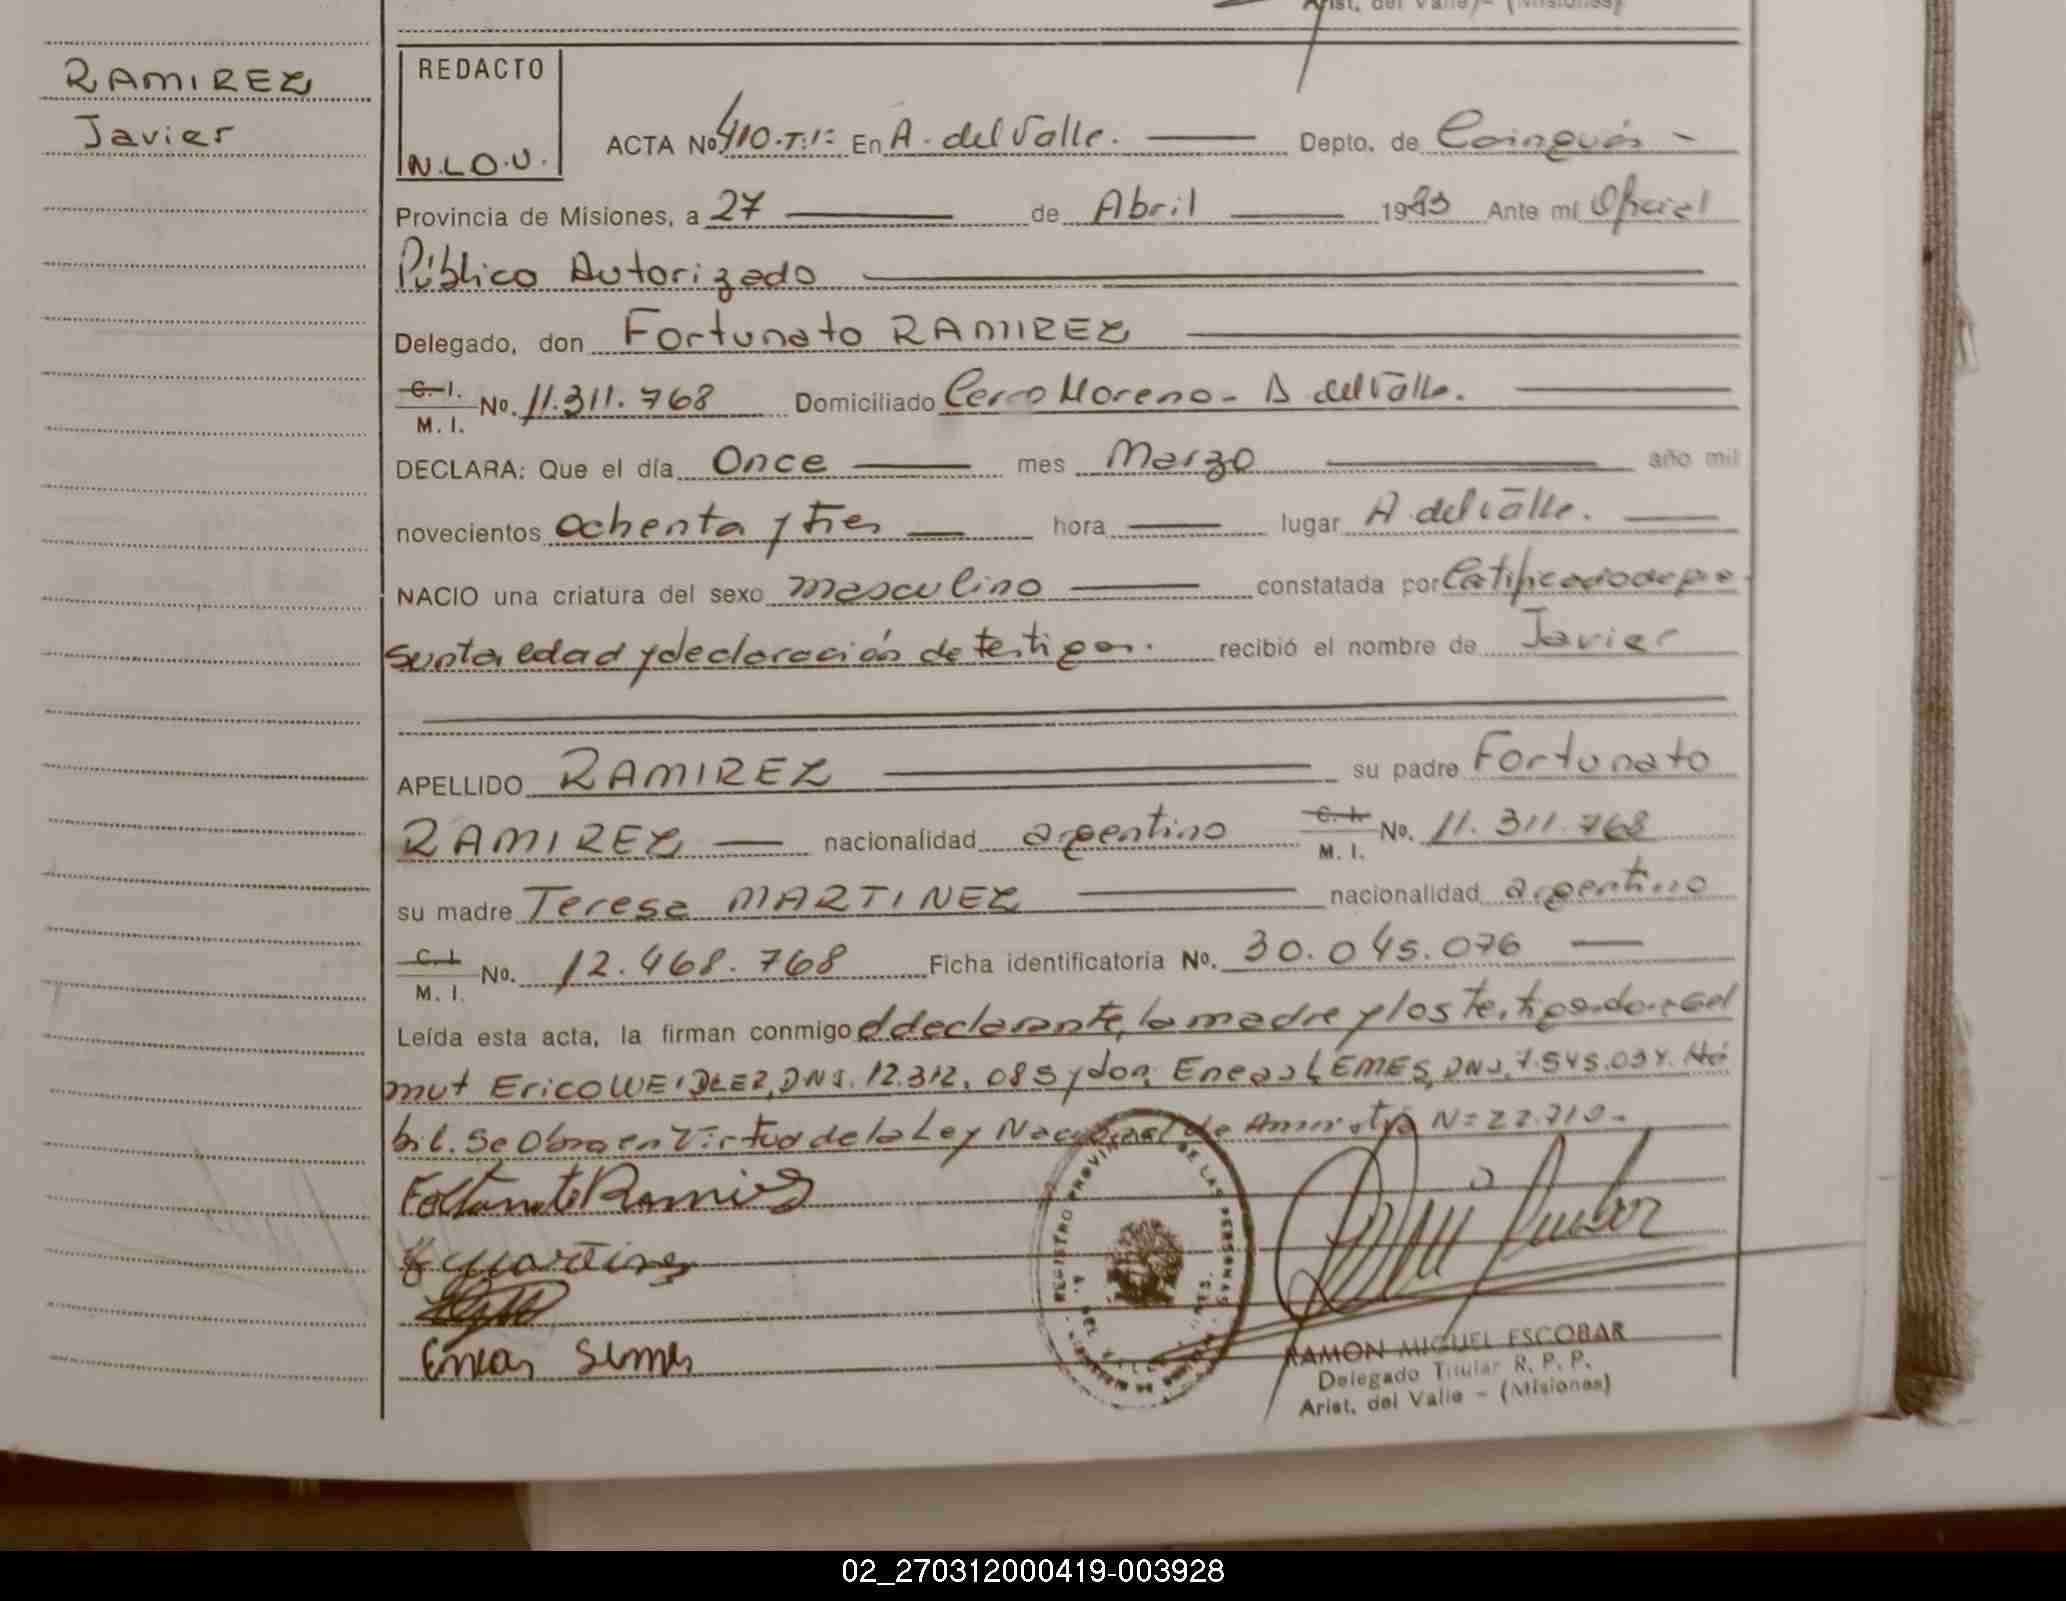 Arist. del Valle) - (Misiones)
RAMIREZ
Javier
REDACTO
N.L.O.U.
ACTA No. 410.T.1= En A. del Valle. Depto. de Cainguás -
Provincia de Misiones, a 27 de Abril 1983 Ante mí Oficial
Público Autorizado
Delegado, don Fortunato RAMIREZ
C. I. M. I. No. 11.311.768 Domiciliado Cerro Moreno - A del Valle.
DECLARA: Que el día Once mes Marzo año mil
novecientos ochenta y tres hora lugar A. del Valle.
NACIO una criatura del sexo masculino constatada por Certificado de pre
sunta edad y declaración de testigos. recibió el nombre de Javier
APELLIDO RAMIREZ su padre Fortunato
RAMIREZ nacionalidad argentino C. I. M. I. No. 11.311.768
su madre Teresa MARTINEZ nacionalidad argentino
C. I. M. I. No. 12.468.768 Ficha identificatoria No. 30.045.076
Leída esta acta, la firman conmigo el declarante, la madre y los testigos don Gel
mut Erico WEIDLEZ, DNI. 12.312.085 y don Eneas LEMES, DNI. 7.545.034. Há
bil. Se Obra en Virtud de la Ley Nacional de Amnistía N= 22.710-
Fortunato Ramirez
Martinez
Eneas Lemes
REGISTRO PROVINCIAL DE LAS PERSONAS
RAMON MIGUEL ESCOBAR
Delegado Titular R. P. P.
Arist. del Valle - (Misiones)
02_270312000419-003928